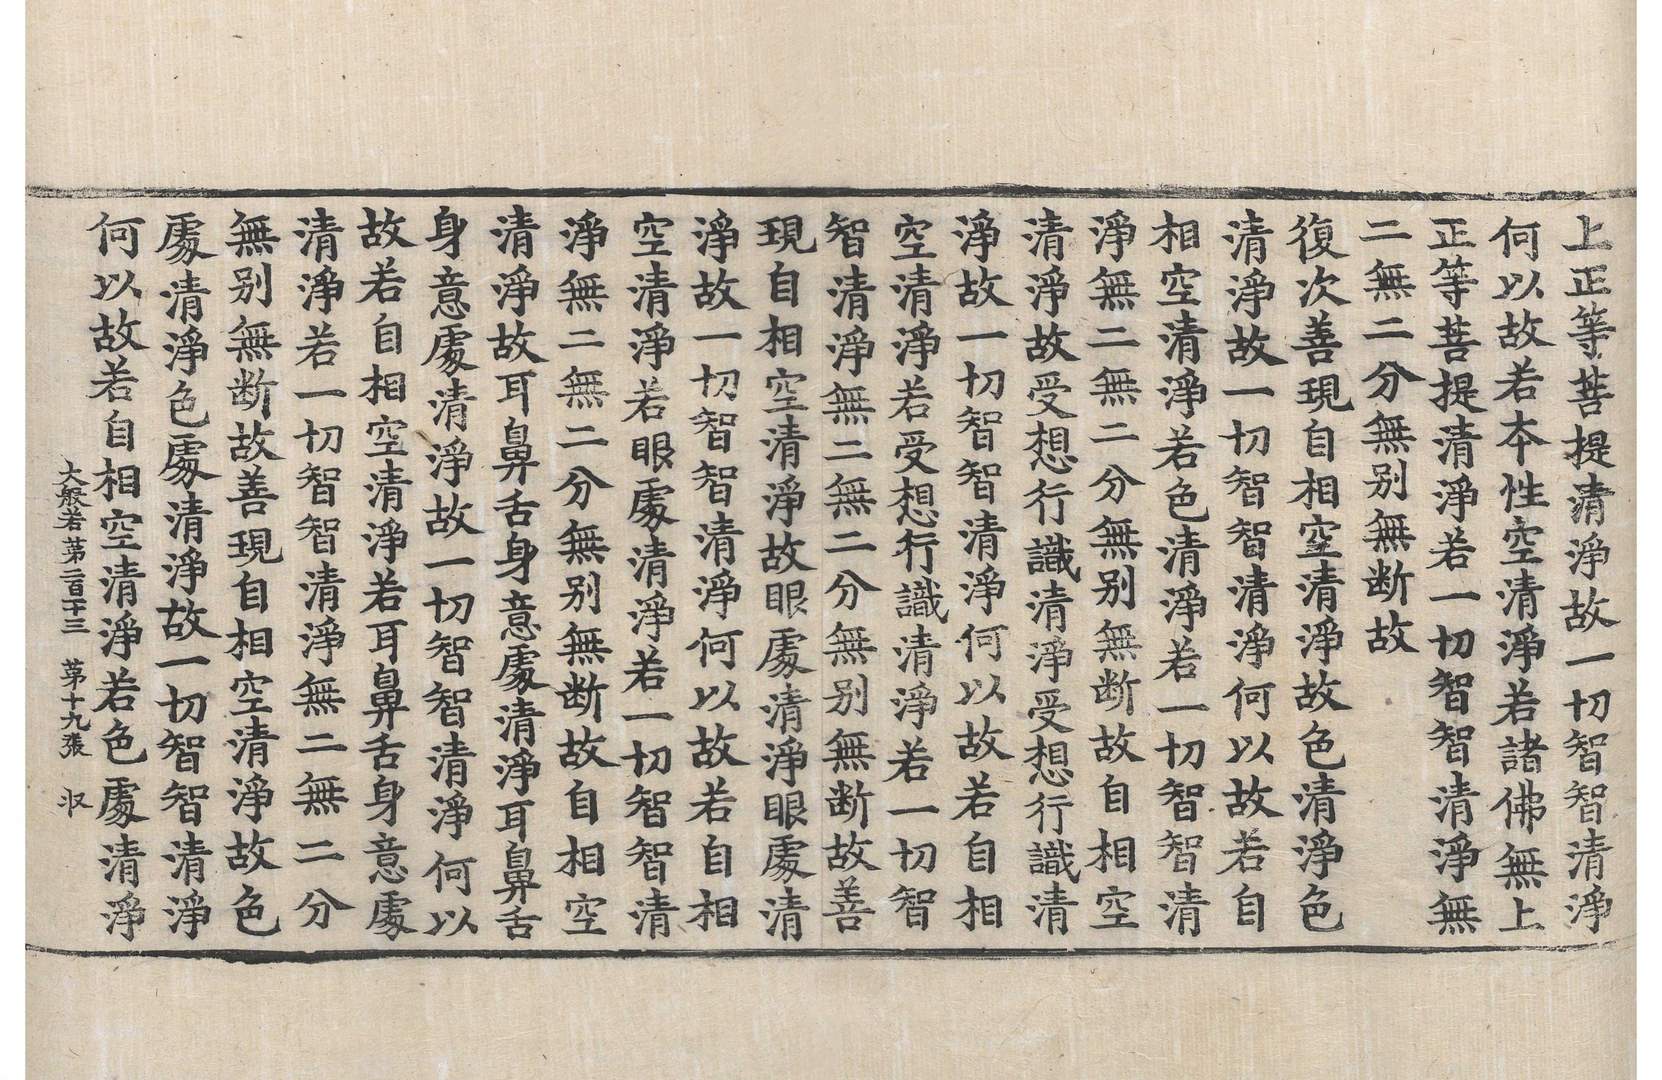 上正等菩提清淨故一切智智清淨
何以故若本性空清淨若諸佛無上
正等菩提清淨若一切智智清淨無
二無二分無别無断故
復次善現自相空清淨故色清淨色
清淨故一切智智清淨何以故若自
相空清淨若色清淨若一切智智清
淨無二無二分無别無断故自相空
清淨故受想行識清淨受想行識清
淨故一切智智清淨何以故若自相
空清淨若受想行識清淨若一切智
智清淨無二無二分無别無断故善
現自相空清淨故眼處清淨眼處清
淨故一切智智清淨何以故若自相
空清淨若眼處清淨若一切智智清
淨無二無二分無别無断故自相空
清淨故耳鼻舌身意處清淨耳鼻舌
身意處清淨故一切智智清淨何以
故若自相空清淨若耳鼻舌身意處
清淨若一切智智清淨無二無二分
無别無断故善現自相空清淨故色
處清淨色處清淨故一切智智清淨
何以故若自相空清淨若色處清淨
大般若第二百十三 第十九張 收